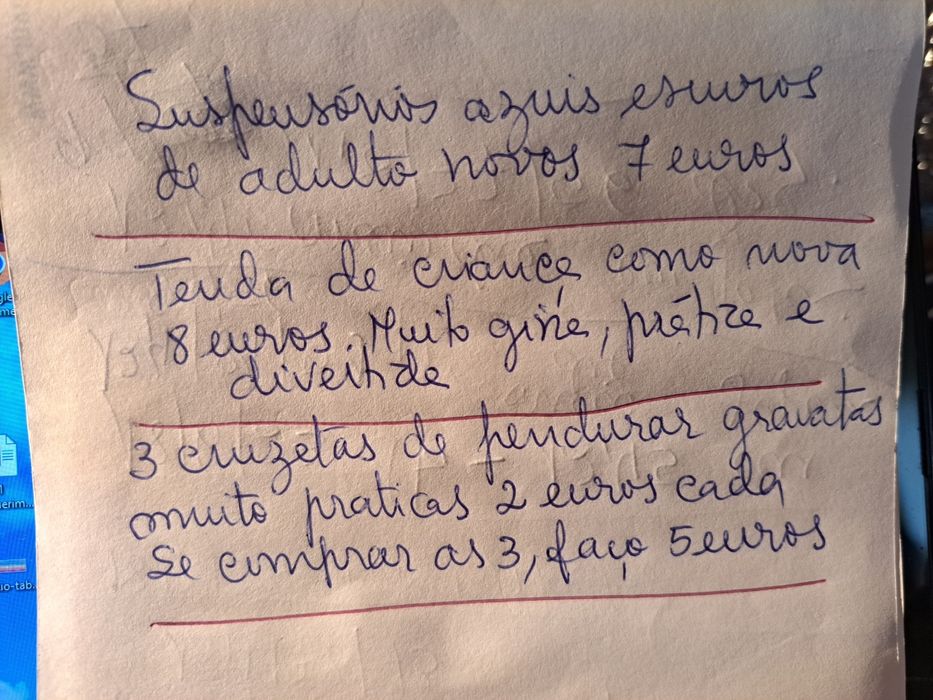 Suspensórios azuis escuros
de adulto novos 7 euros
Tenda de criança como nova
8 euros. Muito gira, prática e
divertida
3 cruzetas de pendurar gravatas
muito praticas 2 euros cada
Se comprar as 3, faço 5 euros
erim...
io-tab.